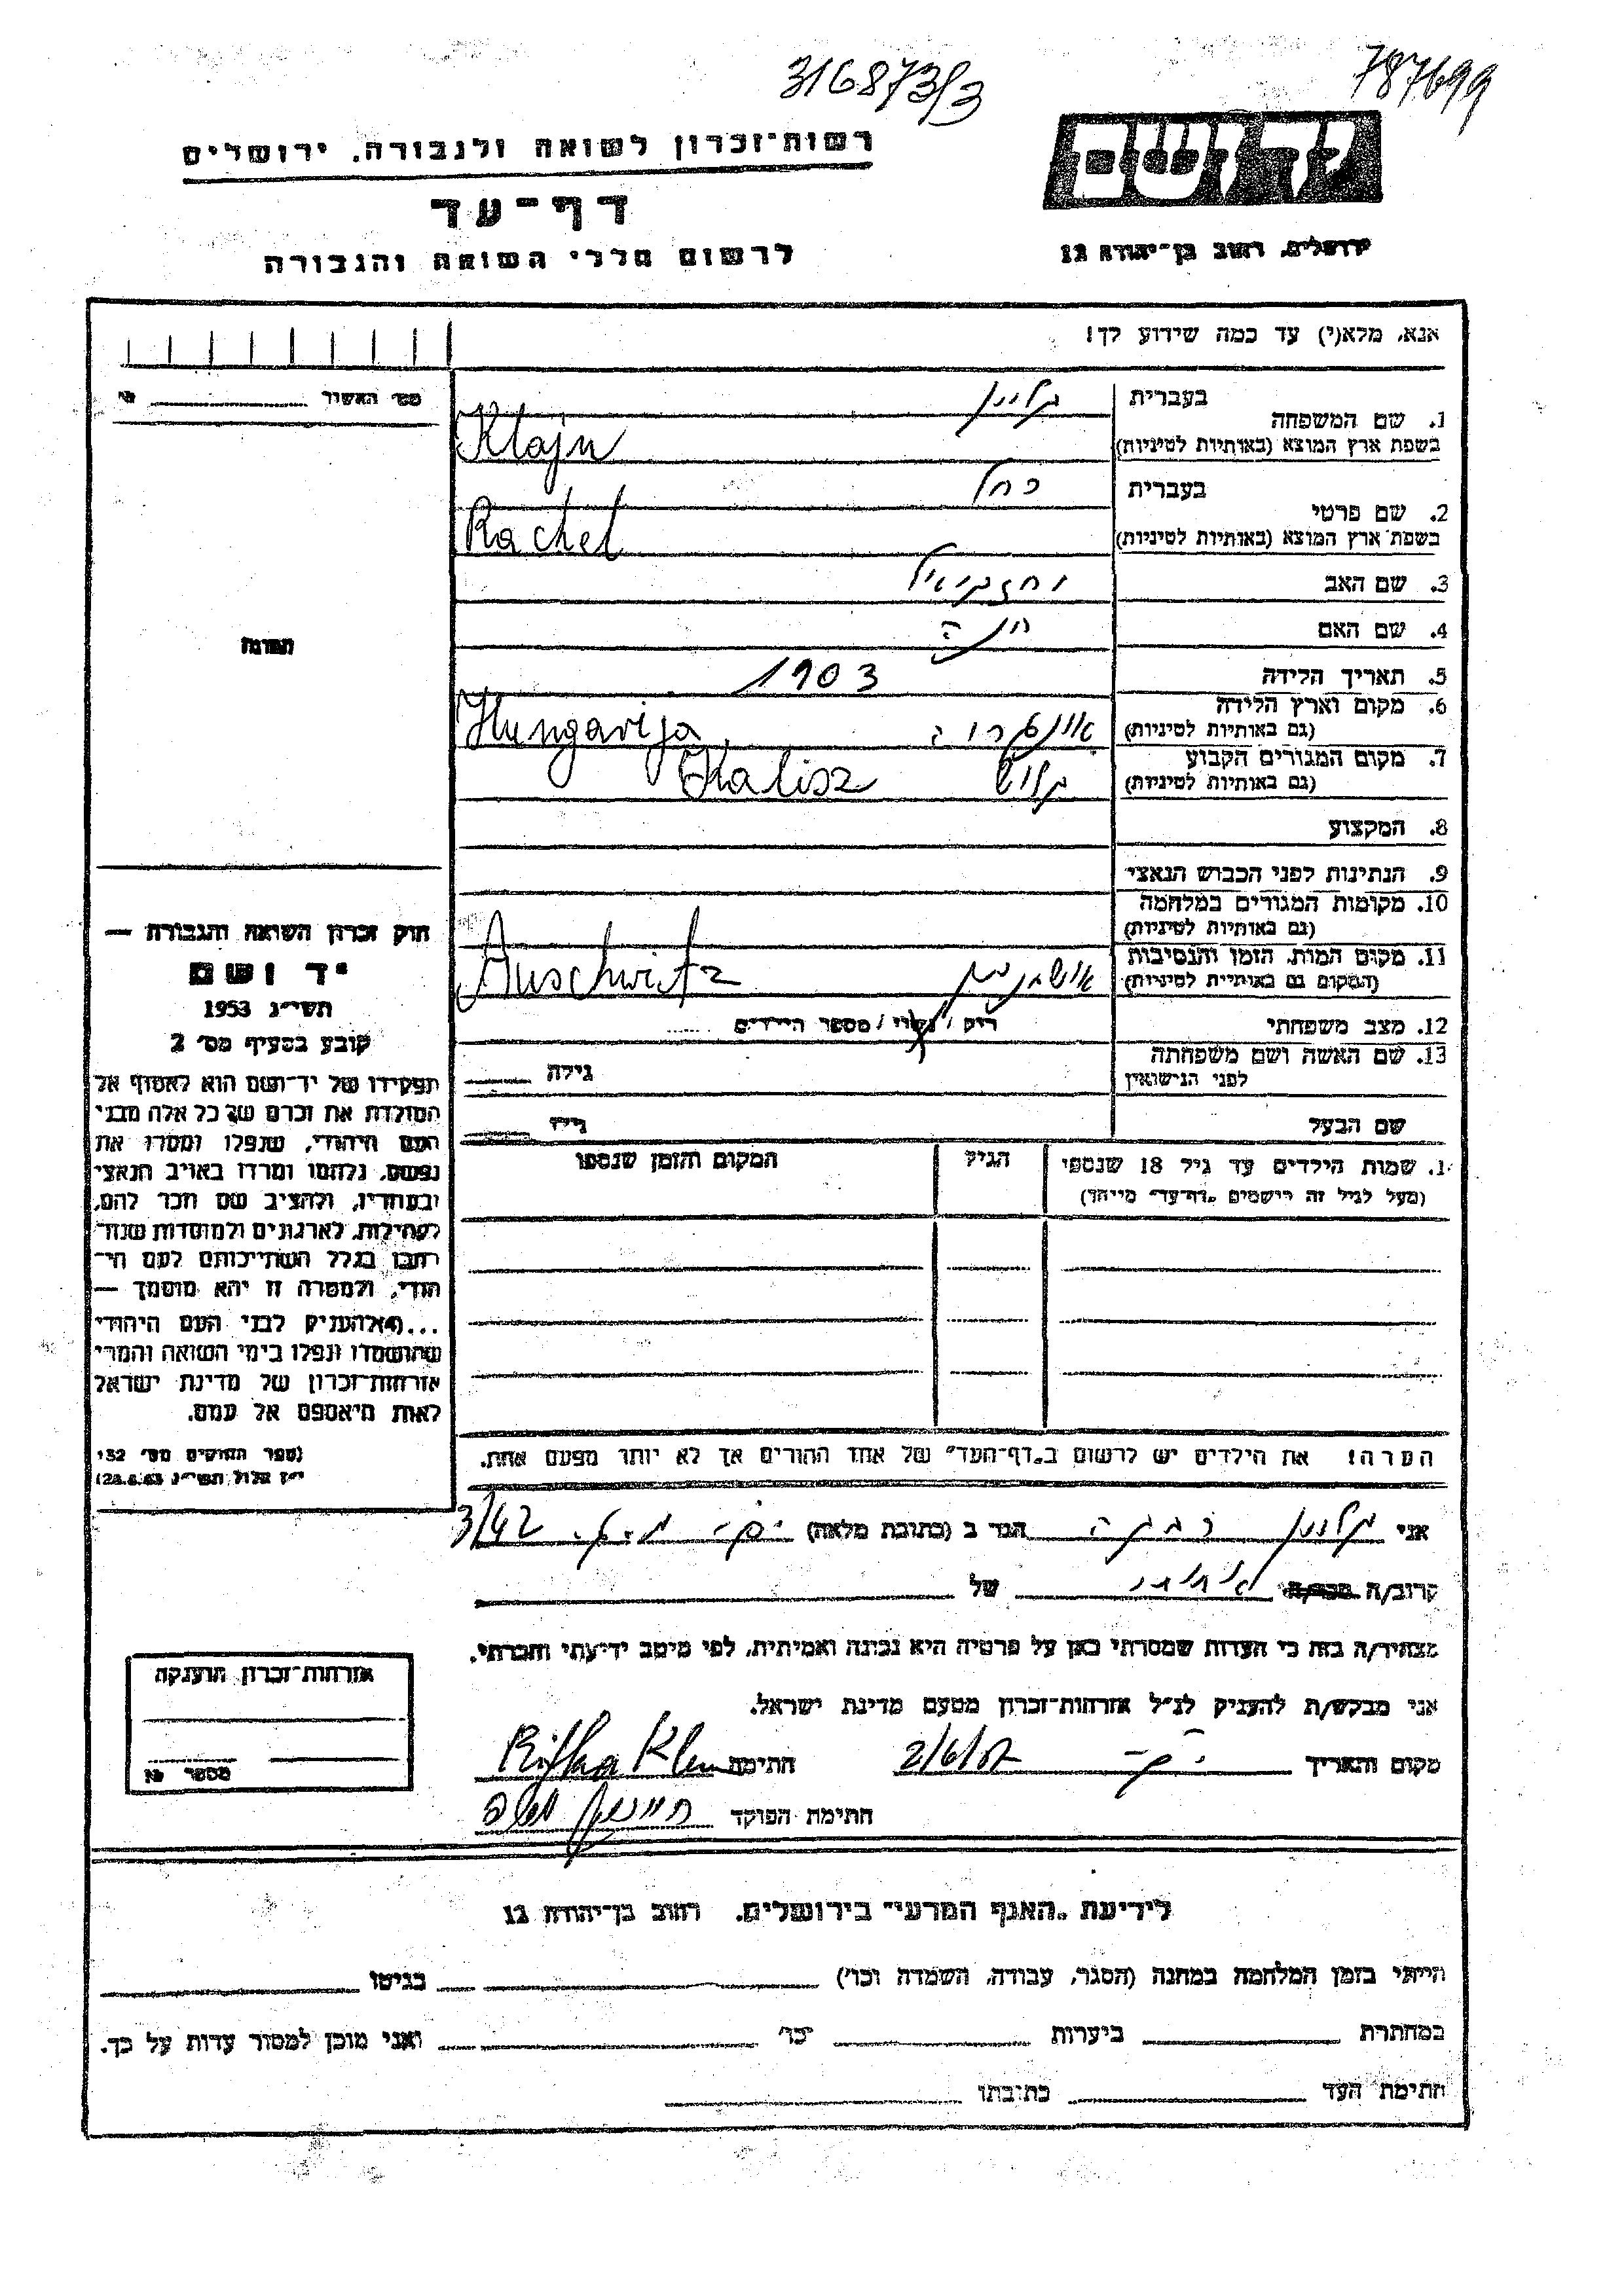 316873/3
787699
רשות-זכרון לשואה ולגבורה, ירושלים
יד ושם
דף-עד
לרשום חללי השואה והגבורה
ירושלים, רחוב בן-יהודה 12
אנא, מלא(י) עד כמה שידוע לך!
מס׳ האשור
1. שם המשפחה בעברית קליין
בשפת ארץ המוצא (באותיות לטיניות) Klajn
2. שם פרטי בעברית רחל
בשפת ארץ המוצא (באותיות לטיניות) Rachel
3. שם האב יחזקאל
4. שם האם
5. תאריך הלידה 1903
6. מקום וארץ הלידה (גם באותיות לטיניות) Hungarija,
7. מקום המגורים הקבוע (גם באותיות לטיניות) קליש Kalisz
8. המקצוע
9. הנתינות לפני הכבוש הנאצי
10. מקומות המגורים במלחמה (גם באותיות לטיניות)
11. מקום המות, הזמן והנסיבות (המקום גם באותיות לטיניות) אושביץ Auschwitz
12. מצב משפחתי רוק / נשוי / מספר הילדים
13. שם האשה ושם משפחתה לפני הנישואין גילה
שם הבעל גילו
1. שמות הילדים עד גיל 18 שנספו
(מעל לגיל זה רישמים „דף-עד״ מייחד)
הגיל
המקום והזמן שנספו
הערה! את הילדים יש לרשום ב„דף-העד״ של אחד ההורים אך לא יותר מפעם אחת.
תמונה
חוק זכרון השואה והגבורה —
יד ושם
תשי״ג 1953
קובע בסעיף מס׳ 2
תפקידו של יד-ושם הוא לאסוף אל
המולדת את זכרם של כל אלה מבני
העם היהודי, שנפלו ומסרו את
נפשם, נלחמו ומרדו באויב הנאצי
ובעוזריו, ולהציב שם וזכר להם,
לקהילות, לארגונים ולמוסדות שנח-
רבו בגלל השתייכותם לעם הי-
הודי, ולמטרה זו יהא מוסמך —
...(4) להעניק לבני העם היהודי
שהושמדו ונפלו בימי השואה והמרי
אזרחות-זכרון של מדינת ישראל
לאות היאספם אל עמם.
(ספר החוקים מס׳ 132
י״ז אלול תשי״ג 28.8.53)
אני קליין רבקה הגר ב (כתובת מלאה) 3/42
קרוב/ה מכר/ה של
מצהיר/ה בזה כי העדות שמסרתי כאן על פרטיה היא נכונה ואמיתית, לפי מיטב ידיעתי והכרתי.
אני מבקש/ת להעניק לנ״ל אזרחות-זכרון מטעם מדינת ישראל.
מקום ותאריך 2/6/57 חתימה Rifka Klein
חתימת הפוקד
אזרחות-זכרון הוענקה
מספר
לידיעת „האגף המדעי״ בירושלים, רחוב בן-יהודה 12
הייתי בזמן המלחמה במחנה (הסגר, עבודה, השמדה וכו׳) בגיטו
במחתרת ביערות וכו׳ ואני מוכן למסור עדות על כך.
חתימת העד כתובתו